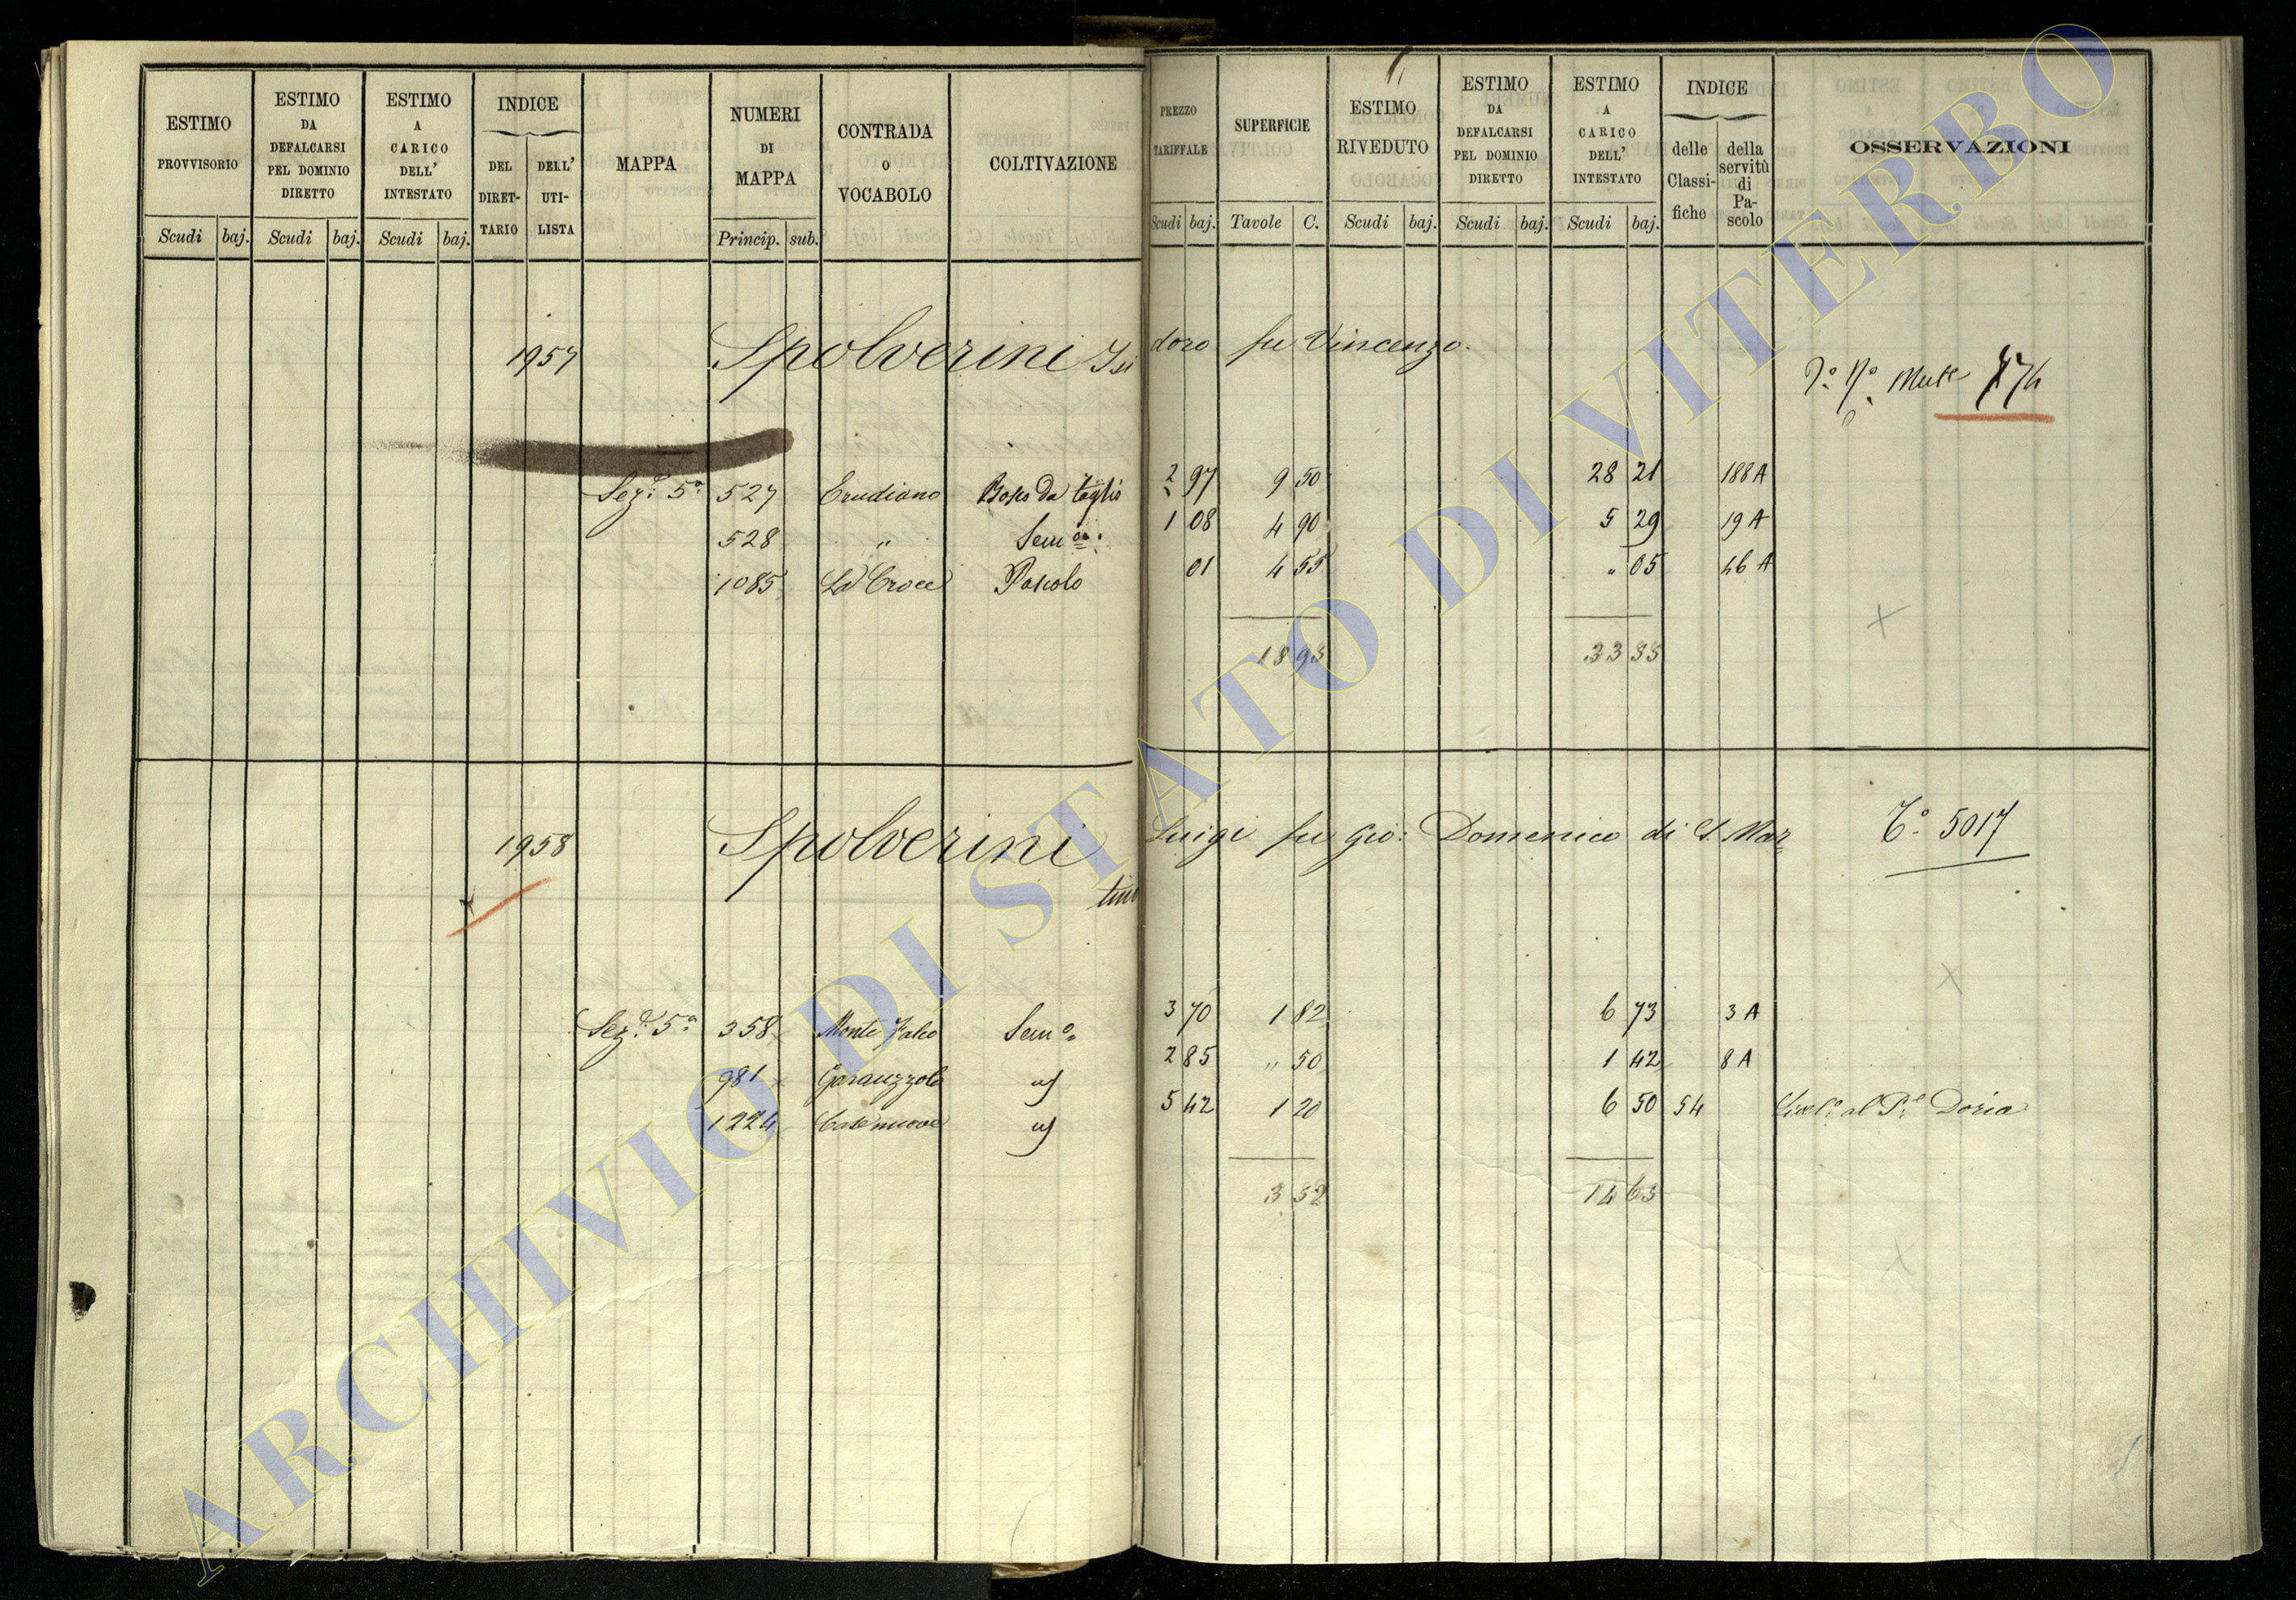 ESTIMO PROVVISORIO
ESTIMO DA DEFALCARSI PEL DOMINIO DIRETTO
ESTIMO A CARICO DELL' INTESTATO
INDICE
DEL DIRET-TARIO
DELL' UTI-LISTA
MAPPA
NUMERI DI MAPPA
CONTRADA o VOCABOLO
COLTIVAZIONE
PREZZO TARIFFALE
SUPERFICIE
ESTIMO RIVEDUTO
ESTIMO DA DEFALCARSI PEL DOMINIO DIRETTO
ESTIMO A CARICO DELL' INTESTATO
INDICE
delle Classi-fiche
della servitù di Pa-scolo
OSSERVAZIONI
Scudi baj. Scudi baj. Scudi baj. Princip. sub. Scudi baj. Tavole C. Scudi baj. Scudi baj. Scudi baj.
1957 Spolverini Isidoro fu Vincenzo.
Sez.e 5a 527 Bosco Da taglio 2 97 9 50 28 21 188 A
528 " Sem.o 1 08 4 90 5 29 19 A
1085 La Croce Pascolo 01 4 55 " 05 46 A
18 95 33 55
1958 Spolverini Luigi fu Gio: Domenico di S. Mar=
tino
To 5017
Sez.e 5a 358 Monte Falco Sem.o 3 70 1 82 6 73 3 A
981 2 85 " 50 1 42 8 A
1224 Case nuove 5 42 1 20 6 50 54 Livel.o al P.e Doria
3 52 14 63
ARCHIVIO DI STATO DI VITERBO